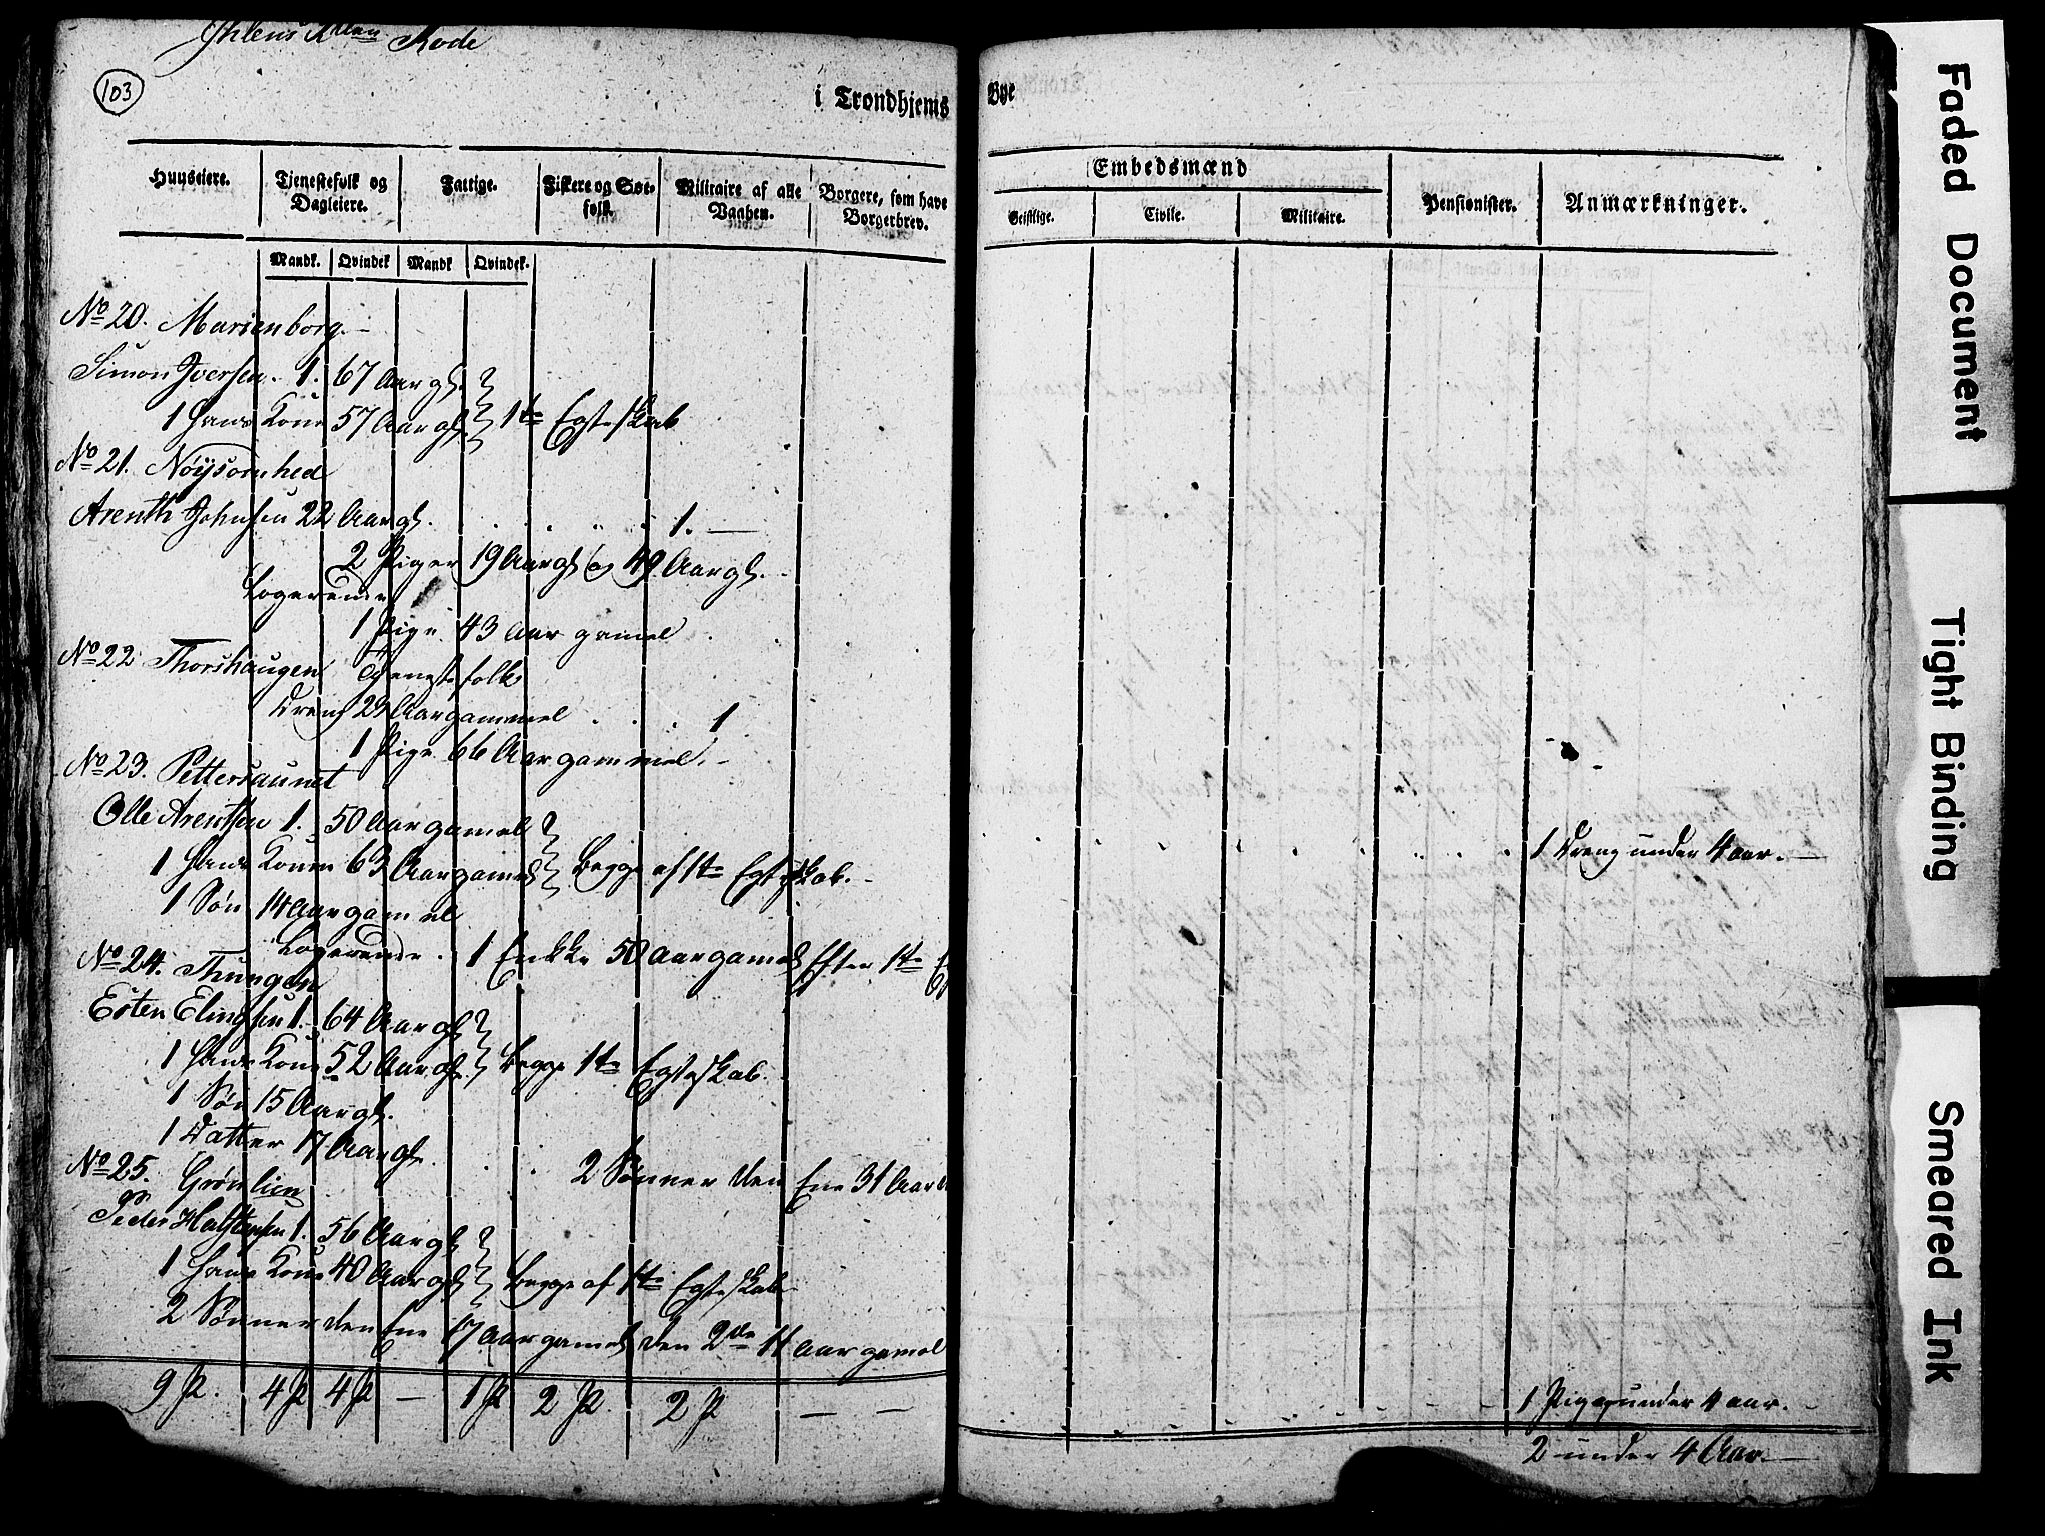 Ihlens Rode
103
i Trondhjems Bye
Huuseiere. Tjenestefolk og Dagleiere. Fattige. Fiskere og Søefolk. Militaire af alle Vaaben. Borgere, som have Borgerbrev. Embedsmænd Pensionister. Anmærkninger.
Geistlige. Civile. Militaire.
Mandk. Qvindek Mandk Qvindek.
No 20. Marienborg.
Simon Iversen. 1. 67 Aar gl.
1 Hans Kone 57 Aar gl. 1te Egteskab
No 21. Nøysomhed
Arenth Johnsen 22 Aar gl. 1.
2 Piger 19 Aar gl og 49 Aar gl.
Logerende
1 Pige 43 Aar gamel
No 22 Thorshaugen Tjenestefolk
Dreng 29 Aar gammel 1
1 Pige 66 Aar gammel.
No 23. Pettersaunet
Olle Arentsen 1. 50 Aar gamel
1 Hans Kone 63 Aar gamel Begge af 1te Egteskab. 1 Dreng under 4 aar.
1 Søn 14 Aar gamel
Logerende. 1 Enkke 50 aar gamel Efter 1te
No 24. Thungen
Esten Elingsen 1. 64 Aar gl
1 Hans Kone 52 Aar gl. Begge 1te Egteskab.
1 Søn 15 Aar gl.
1 Datter 17 Aar gl.
No 25. Grønlien 2 Sønner den Ene 31 Aar
Peder Halstensen 1. 56 Aar gl
1 Hans Kone 40 Aar gl Begge af 1te Egteskab
2 Sønner den Ene 17 Aar gamel den 2de 11 aar gamel
1 Pige under 4 aar.
9 P. 4 P 4 P — 1 P 2 P. 2 P — —
2 under 4 Aar.
Faded Document
Tight Binding
Smeared Ink